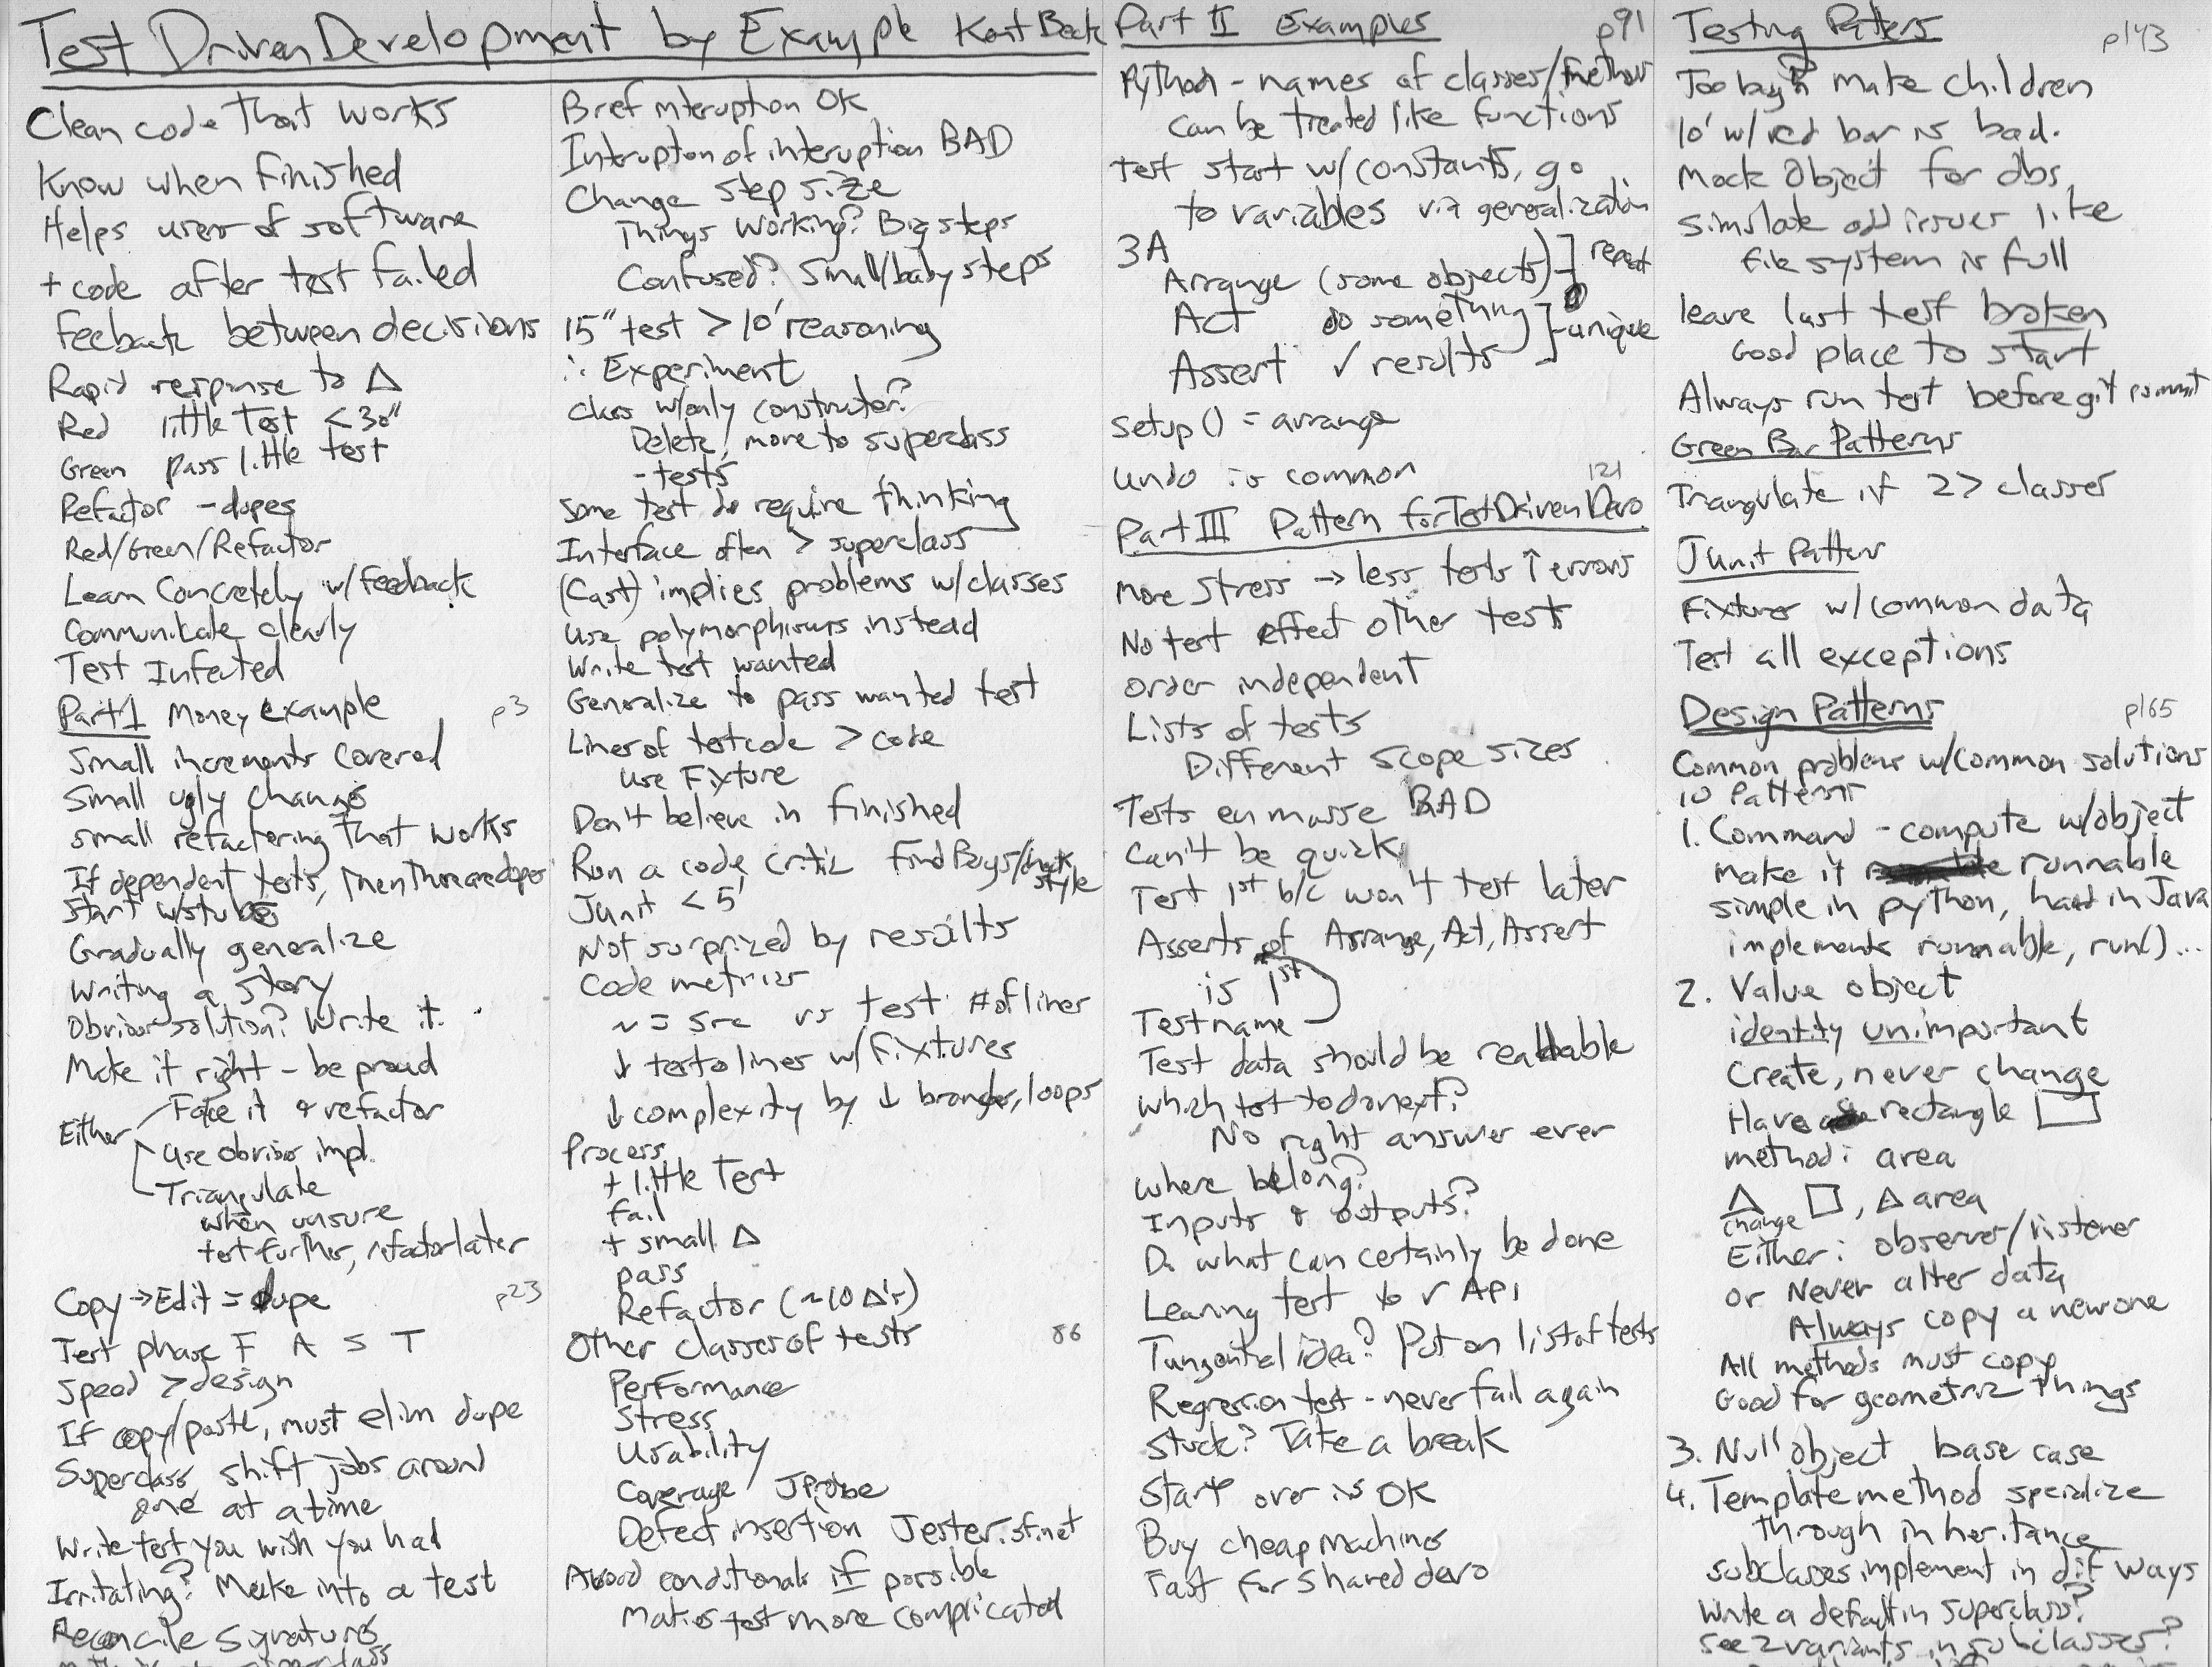 Test Driven Development by Example Kent Beck
Clean code that works
Know when finished
Helps users of software
+ code after test failed
Feeback between decisions
Rapid response to Δ
Red little test < 30"
Green pass little test
Refactor - dupes
Red/Green/Refactor
Learn Concretely w/feedback
Communicate clearly
Test Infected
Part 1 Money example p3
Small increments covered
Small ugly changes
small refactering that works
If dependent tests, then there are dupes
start w/stubs
Gradually generalize
Writing a story
Obvious solution? Write it.
Make it right - be proud
Either Fake it & refactor
Use obvious impl.
Triangulate
when unsure
test further, refactor later
Copy → Edit = dupe p23
Test phase F A S T
Speed > design
If copy/paste, must elim dupe
Superclass shift jobs around
one at a time
Write test you wish you had
Irritating? Make into a test
Reconcile signatures
Bref interuption OK
Intruption of interuption BAD
Change step size
Things working? Big steps
Confused? Small/baby steps
15" test > 10' reasoning
∴ Experiment
Class w/only constructor?
Delete, move to superclass
- tests
Some test do require thinking
Interface often > superclass
(Cast) implies problems w/classes
Use polymorphisms instead
Write test wanted
Generalize to pass wanted test
Lines of testcode > code
Use Fixture
Don't believe in finished
Run a code critic FindBugs/check style
Junit < 5'
Not surprized by results
Code metrics
~ = src vs test #of lines
↓ tests lines w/fixtures
↓ complexity by ↓ branches, loops
Process
+ little Test
fail
+ small Δ
pass
Refactor (~10 Δ's)
Other classes of tests 86
Performance
Stress
Usability
Coverage JProbe
Defect insertion Jester.sf.net
Avoid conditionals if possible
Makes test more complicated
Part II Examples p91
Python - names of classes/method
can be treated like functions
Test start w/constants, go
to variables via generalization
3A
Arrange (some objects) repeat
Act do something
Assert ✓ results unique
setup() = arrange
Undo is common
121
Part III Pattern for Test Driven Devo
More stress → less tests ↑ errors
No test effect other tests
Order independent
Lists of tests
Different scope sizes
Tests en masse BAD
Can't be quick
Test 1st b/c won't test later
Asserts of Arrange, Act, Assert
is 1st
Test name
Test data should be readable
Which test to do next?
No right answer ever
Where belong?
Inputs & outputs?
Do what can certainly be done
Learning test to ✓ API
Tangential idea? Put on list of tests
Regression test - never fail again
Stuck? Take a break
Start over is OK
Buy cheap machines
Fast for shared devo
Testing Patterns p143
Too big? make children
10' w/red bar is bad.
Mock Object for dbs
Simulate odd issues like
file system is full
leave last test broken
Good place to start
Always run test before git commit
Green Bar Patterns
Triangulate if 2> classes
Junit Pattern
Fixtures w/common data
Test all exceptions
Design Patterns p165
Common problems w/common solutions
10 Patterns
1. Command - compute w/object
make it runnable
simple in python, hard in Java
implements runnable, run()...
2. Value object
identity unimportant
Create, never change
Have rectangle
method: area
Δ change □, Δ area
Either: observer/listener
or Never alter data
Always copy a new one
All methods must copy
Good for geometric things
3. Null object base case
4. Template method specialize
through inheritance
subclasses implement in dif ways
Write a default in superclass?
See 2 variants in subclasses?